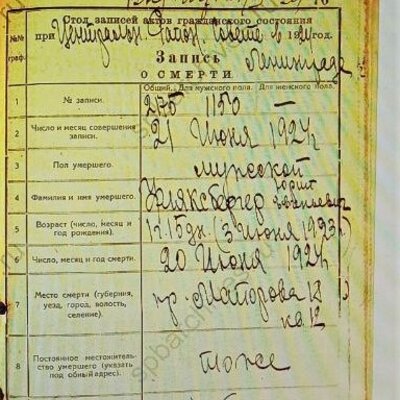 Стол записей актов гражданского состояния
при Централь. Район. Совете в 1924 год.
Ленинграде
Запись
О СМЕРТИ.
№№ граф.
Общий. Для мужского пола. Для женского пола.
1 № записи. 2275 1150 —
2 Число и месяц совершения записи. 21 Июня 1924 г.
3 Пол умершего. мужской
4 Фамилия и имя умершего.
5 Возраст (число, месяц и год рождения). 1 г. 15 дн. (3 июня 1923 г.)
6 Число, месяц и год смерти. 20 Июня 1924 г.
7 Место смерти (губерния, уезд, город, волость, селение). пр. Майорова
кв. 12
8 Постоянное местожительство умершего (указать подобный адрес). тоже